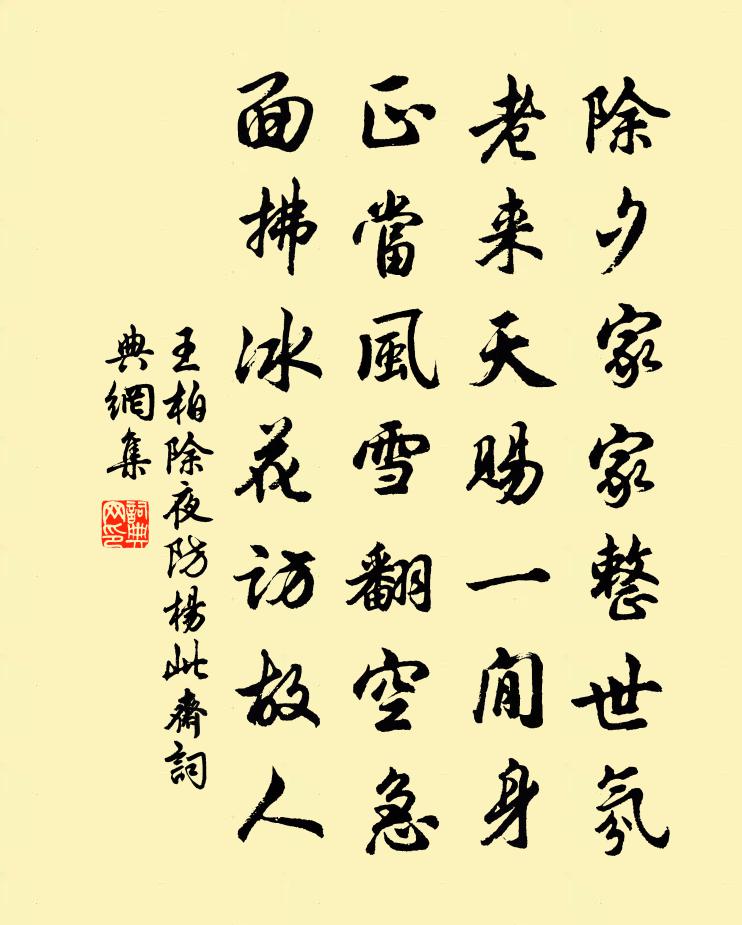 除夕家家整世氛
老来天賜一間身
正當風雪翻空急
面拂冰花訪故人
王柏除夜防楊此齋詞
典網集
詞典網印